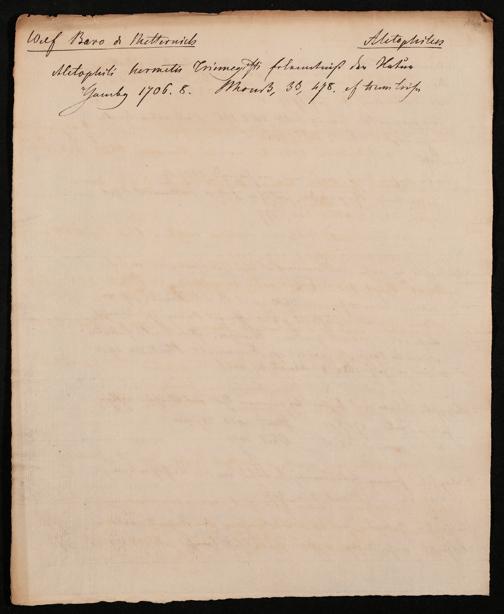 Wolf Baro de Metternich Aletophilus
Aletophili hermetis Trismegisti erkenntniß der Natur
Hamburg 1706. 8. 33, 498. cf